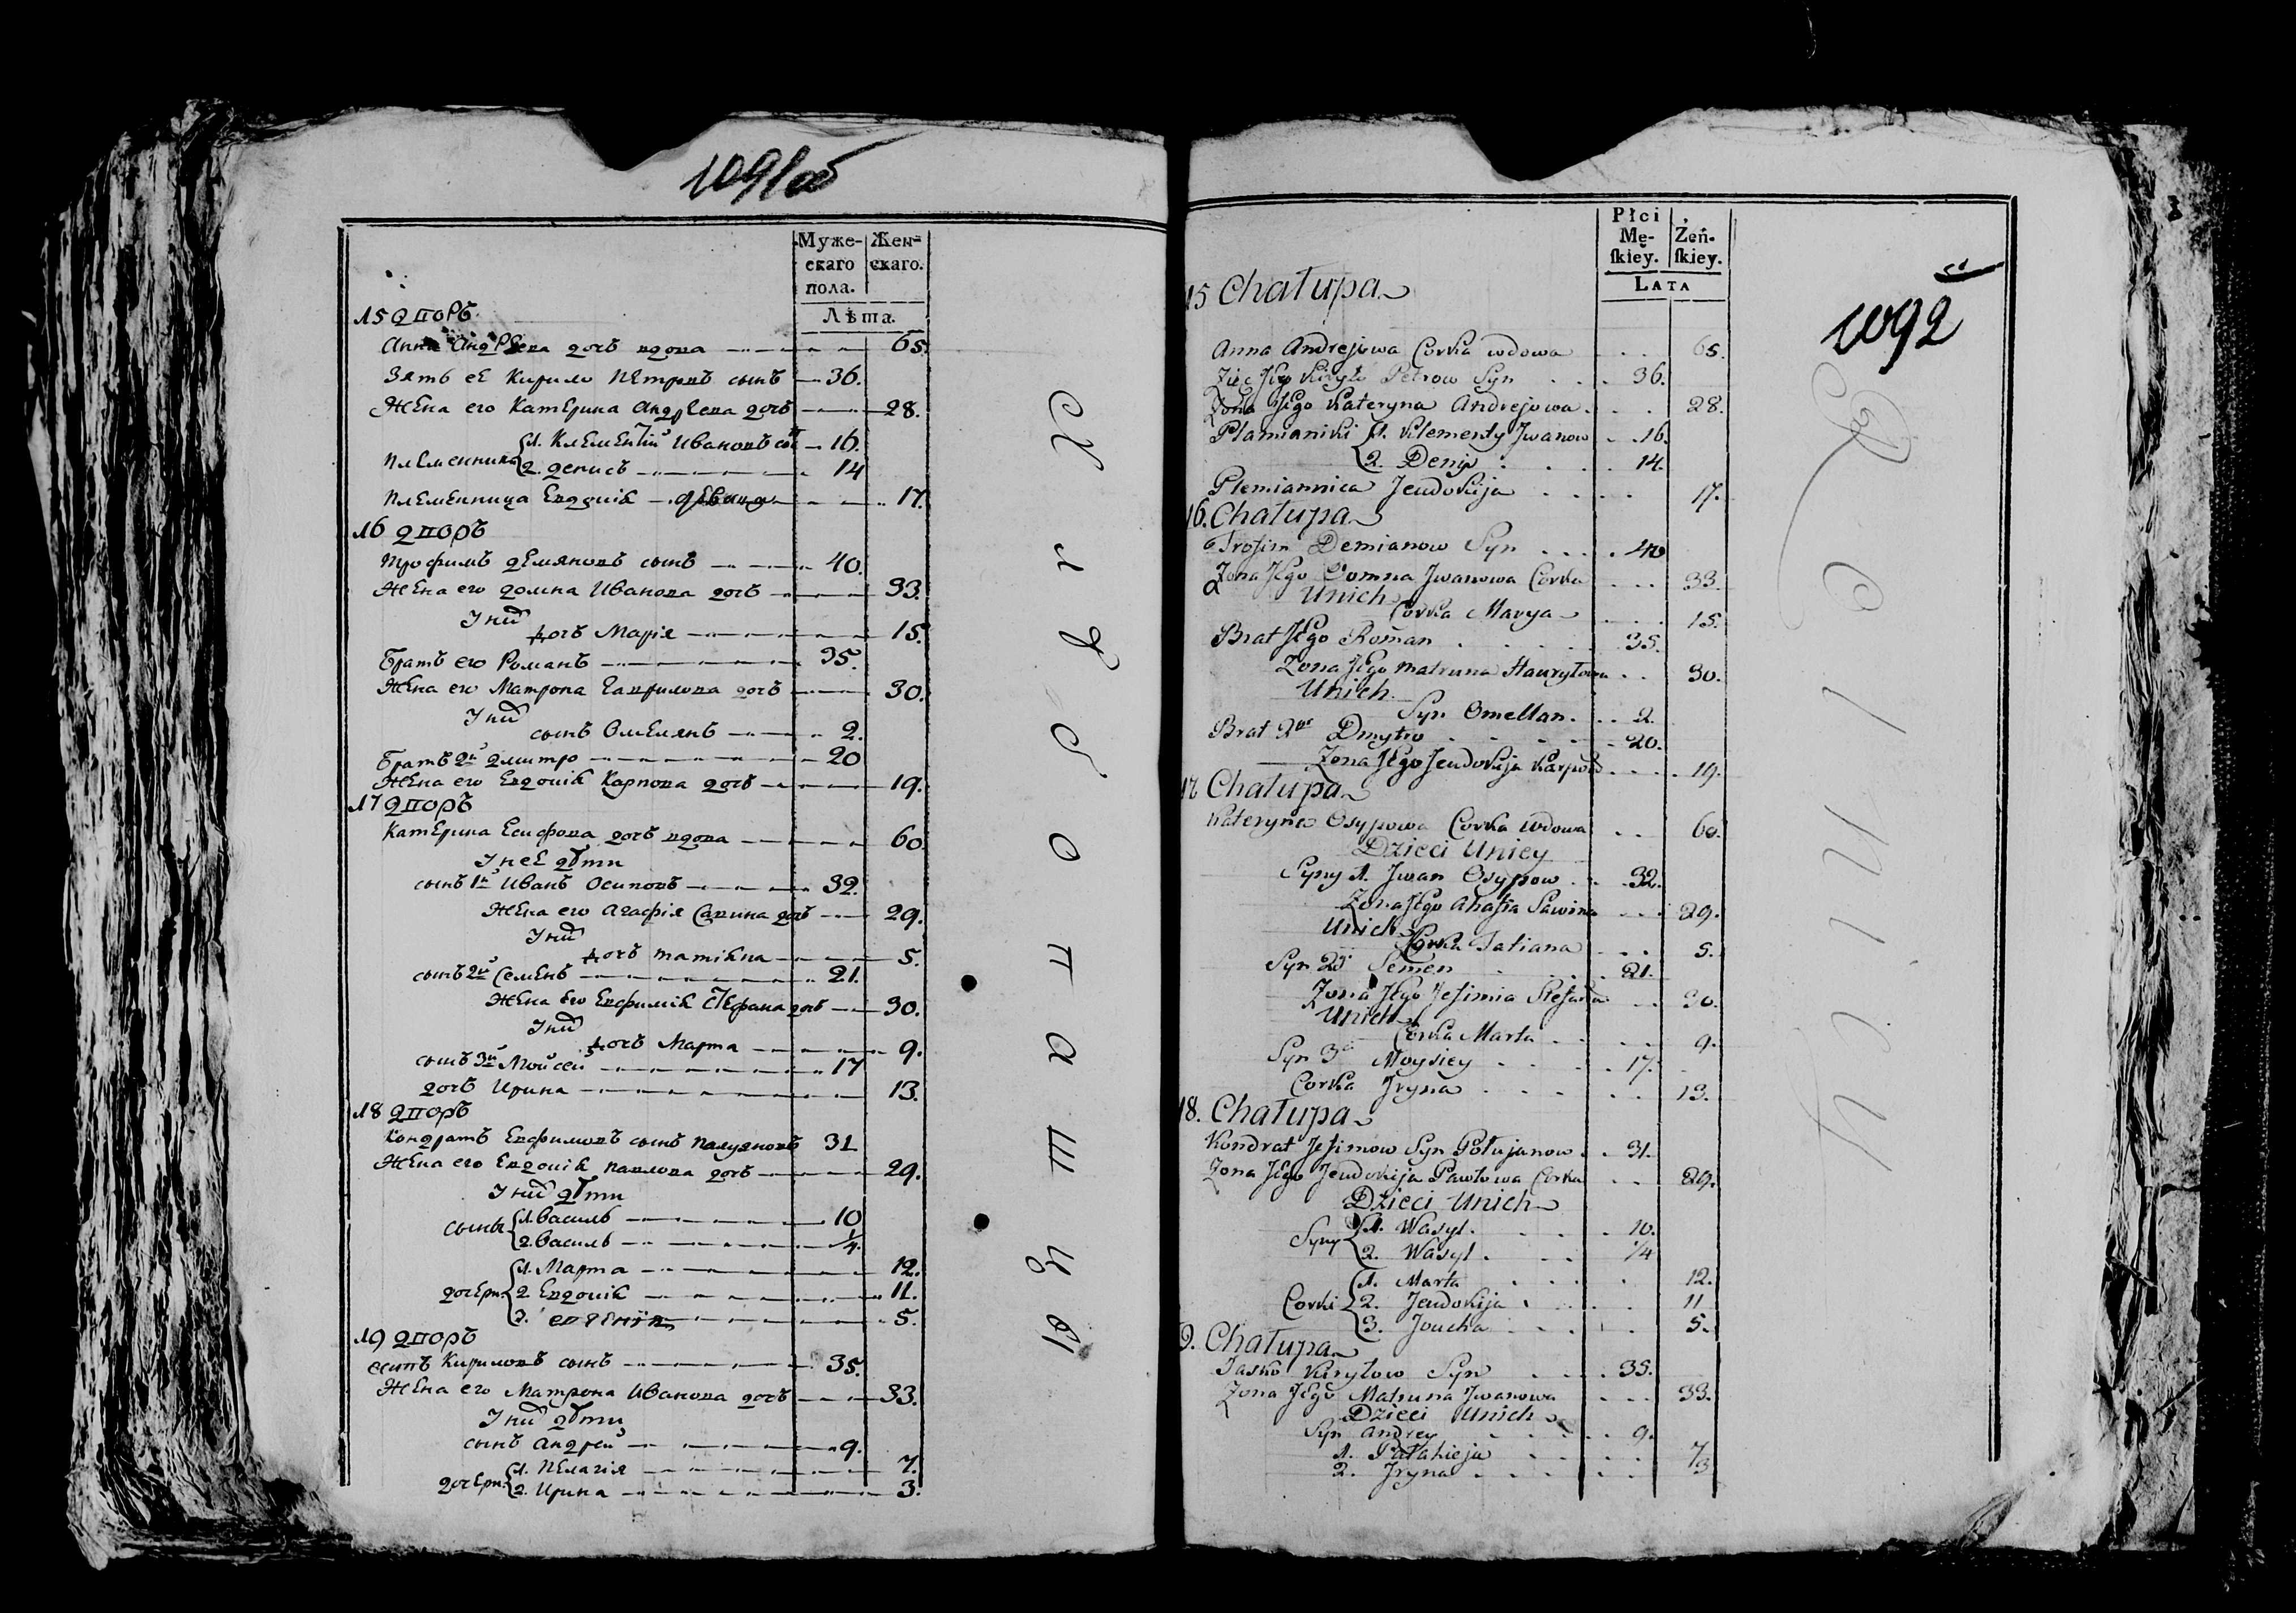 1091 об
Муже-
скаго
пола.
Жен-
скаго.
Лѣта.
15 дворъ
Анна Андреева дочь вдова 65.
Зять ее Кирило Петровъ сынъ 36.
Жена его Катерина Андреева дочь 28.
Племенники 1. Клементій Ивановъ сы 16.
2. Денисъ 14
Племенница Евдокія девица 17.
16 дворъ
Трофимъ Демяновъ сынъ 40.
Жена его Домна Иванова дочь 33.
У них
дочь Марія 15.
Братъ его Романъ 35.
Жена его Матрона Гаврилова дочь 30.
У них
сынъ Омелянъ 2.
Братъ 2й Дмитро 20
Жена его Евдокія Карпова дочь 19.
17 дворъ
Катерина Есифова дочь вдова 60.
У нее дѣти
сынъ 1й Иванъ Осиповъ 32.
Жена его Агафія Савина дочь 29.
У них
дочь Татіяна 5.
сынъ 2й Семенъ 21.
Жена его Евфимія Стефана дочь 30.
У них
дочь Марта 9.
сынъ 3й Мойсей 17
дочь Ирина 13.
18 дворъ
Кондратъ Евфимовъ сынъ Палуяновъ 31
Жена его Евдокія Павлова дочь 29.
У них дѣти
сыны 1. Василь 10
2. Василь 1/4.
дочери 1. Марта 12.
2. Евдокія 11.
3. Евгенія 5.
19 дворъ
Есипъ Кириловъ сынъ 35.
Жена его Матрона Иванова дочь 33.
У них дѣти
сынъ Андрей 9.
дочери 1. Пелагія 7.
2. Ирина 3.
Хлѣбопашцы
Płci
Mę-
skiey.
Żeń-
skiey.
LATA
1092
15 Chałupa
Anna Andrejowa Corka wdowa 65.
Zięć Jego Kiryło Petrow Syn 36.
Zona Jego Kateryna Andrejowa 28.
Plamianiki 1. Klementy Jwanow 16.
2. Denis 14.
Plemiannica Jeudokija 17.
16. Chałupa
Trofim Demianow Syn 40
Zona Jego Domna Jwanowa Corka 33.
Unich
Corka Marya 15.
Brat Jego Roman 35.
Zona Jego Matruna Hauryłowa 30.
Unich
Syn Omellan 2.
Brat 2gi Dmytro 20.
Zona Jego Jeudokija Karpow 19.
17 Chałupa
Kateryna Osypowa Corka wdowa 60.
Dzieci Uniey
Syny 1. Jwan Osypow 32.
Zona Jego Ahafia Sawina 29.
Unich
Corka Tatiana 5.
Syn 2gi Semen 21.
Zona Jego Jefimia Stefana 30.
Unich
Corka Marta 9.
Syn 3ci Moysiey 17.
Corka Jryna 13.
18. Chałupa
Kondrat Jefimow Syn Połujanow 31.
Zona Jego Jeudokija Pawłowa Corka 29.
Dzieci Unich
Syny 1. Wasyl 10.
2. Wasyl 1/4
Corki 1. Marta 12.
2. Jeudokija 11
3. Joucha 5.
9. Chałupa
Jasko Kiryłow Syn 35.
Zona Jego Matruna Jwanowa 33.
Dzieci Unich
Syn Andrey 9.
1. Pałahieja 7
2. Jryna 3
Rolnicy